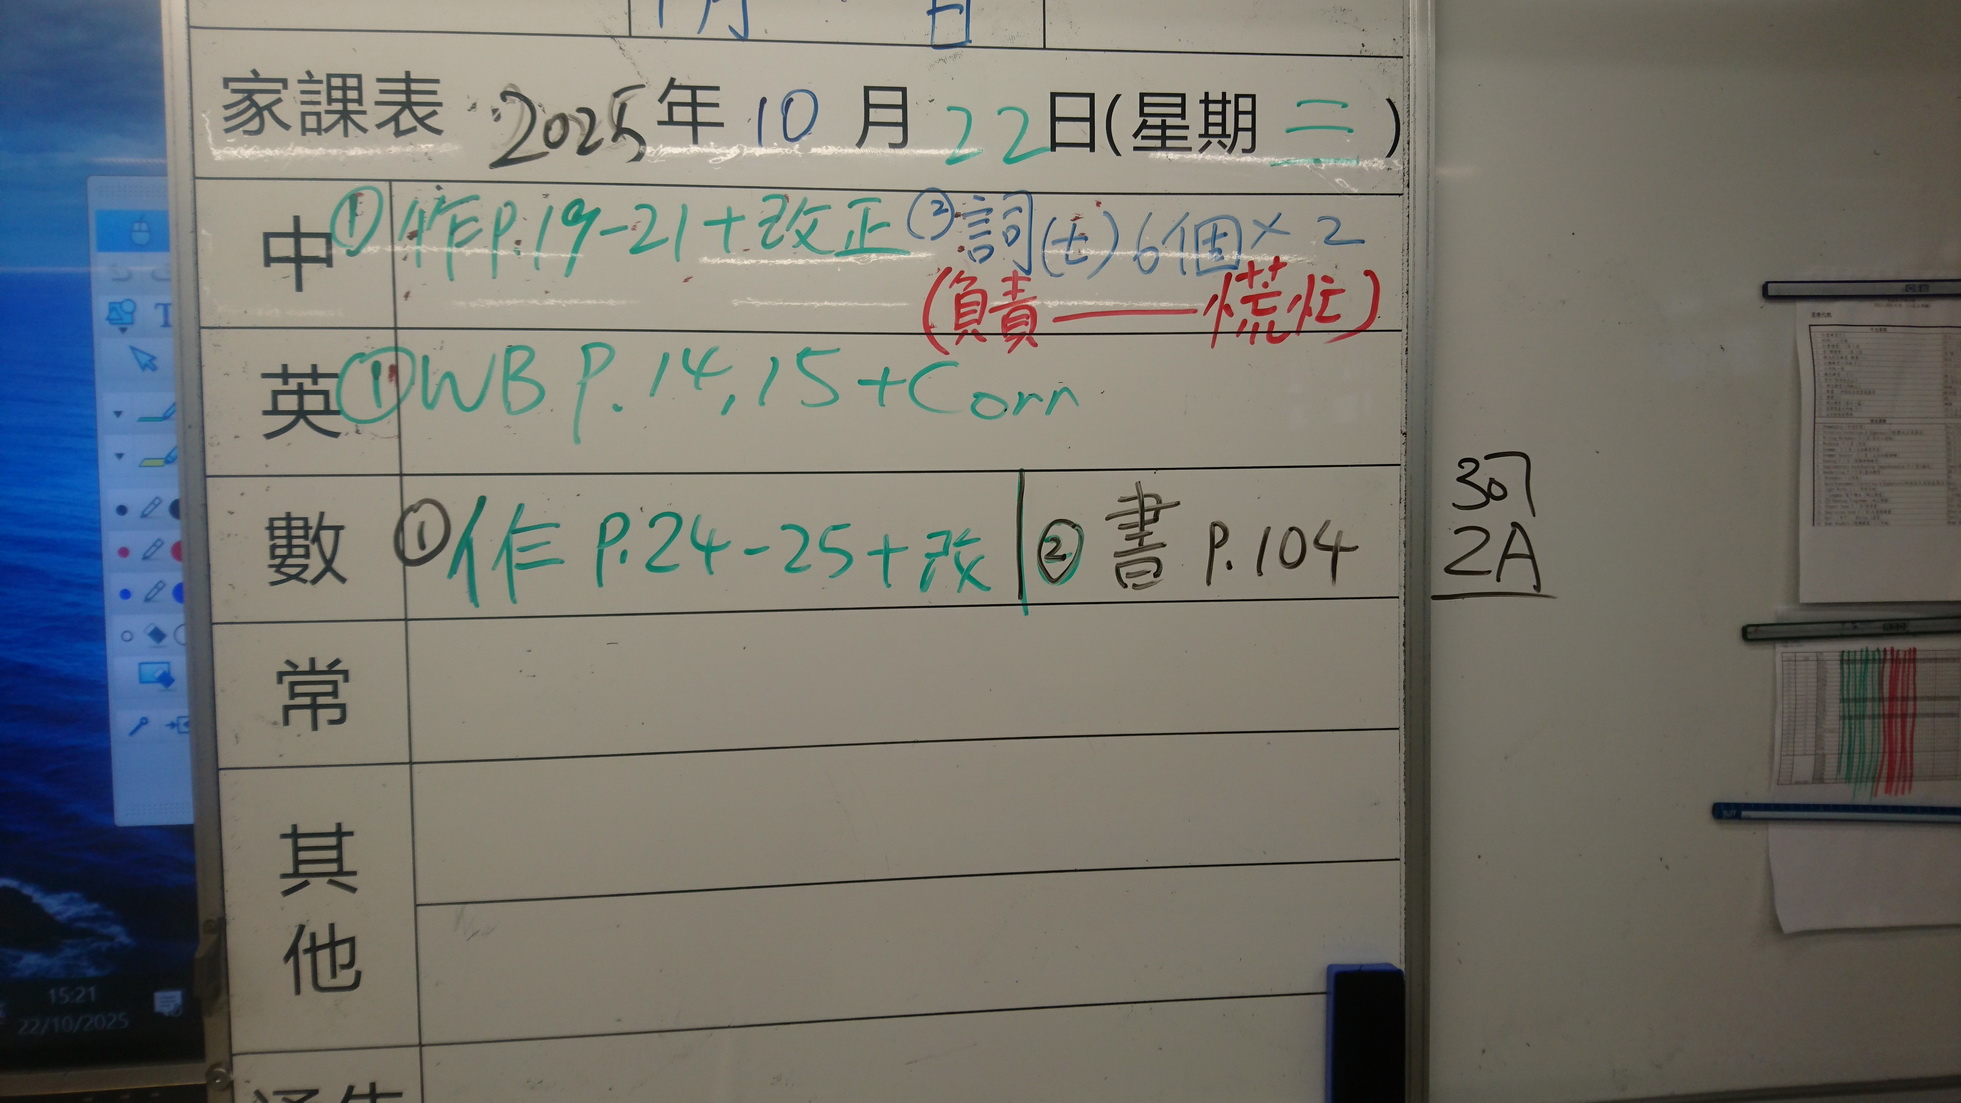 月 日
家課表 2025年 10 月 22日(星期 三 )
中 ① 作P.19-21+改正 ② 詞(七)6個×2
(負責——慌忙)
英 ① WB P.14,15+Corr
數 ① 作 P.24-25+改 | ② 書 P.104
常
其他
通告
2A
15:21
22/10/2025